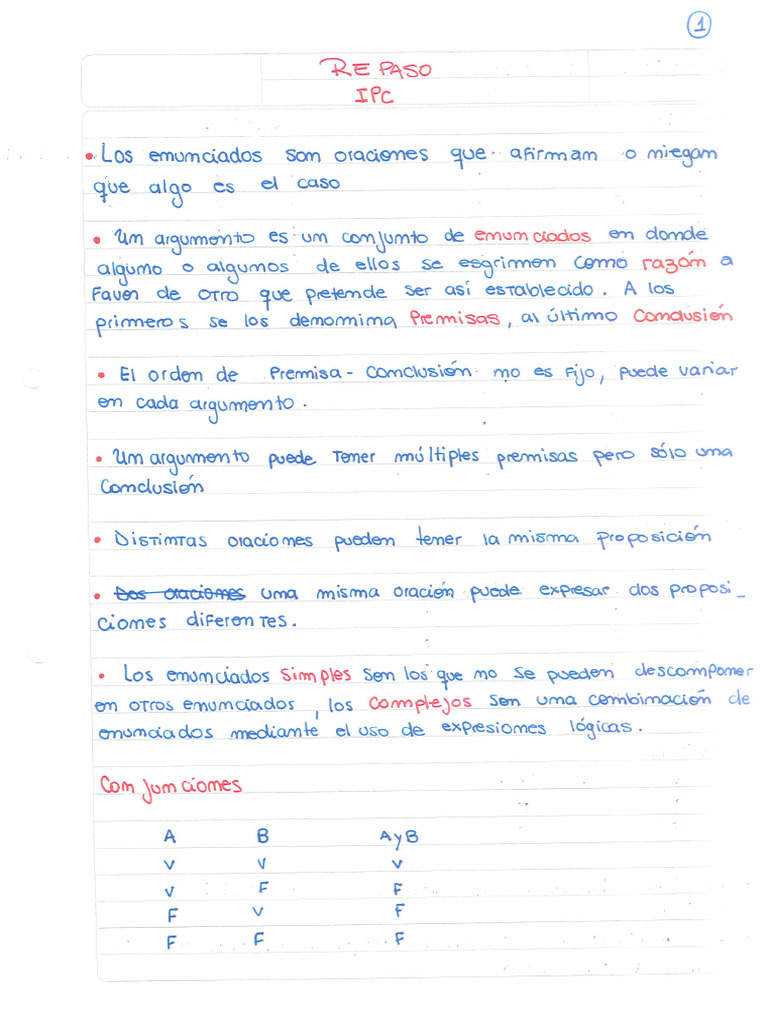 1
REPASO
IPC
• Los enunciados son oraciones que afirman o niegan
que algo es el caso
• Un argumento es un conjunto de enunciados en donde
alguno o algunos de ellos se esgrimen como razón a
favor de otro que pretende ser así establecido. A los
primeros se los denomina Premisas, al último Conclusión
• El orden de Premisa - Conclusión no es fijo, puede variar
en cada argumento.
• Un argumento puede tener múltiples premisas pero sólo una
Conclusión
• Distintas oraciones pueden tener la misma proposición
• Dos oraciones una misma oración puede expresar dos proposi_
ciones diferentes.
• Los enunciados Simples son los que no se pueden descomponer
en otros enunciados, los Complejos son una combinación de
enunciados mediante el uso de expresiones lógicas.
Conjunciones
A B A y B
V V V
V F F
F V F
F F F